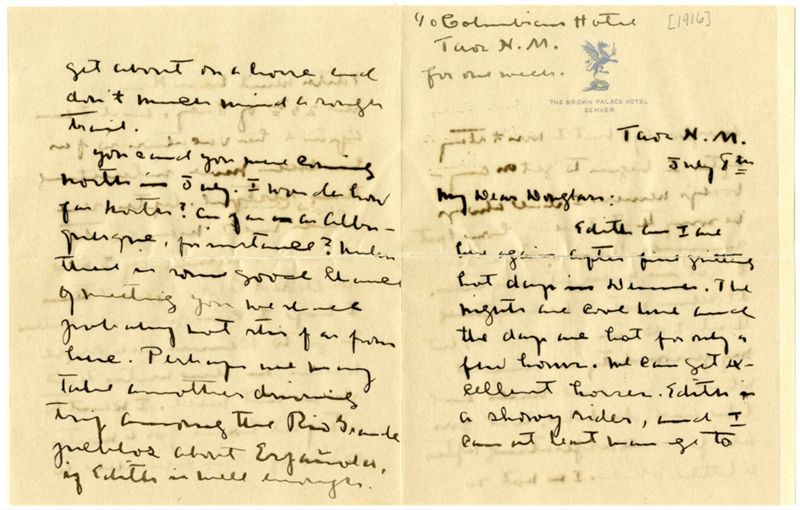 c/o Columbian Hotel [1916]
Taos N.M.
for one week.
THE BROWN PALACE HOTEL
DENVER
Taos N.M.
July 8th
My Dear Douglass:
Edith and I are
here again after five
hot days in Denver. The
nights are cool here and
the days are hot for only a
few hours. We can get ex-
cellent horses. Edith is
a showy rider, and I
can at least manage to
get about on a horse and
don't much mind a rough
trail.
You said you were coming
north in July. I wonder how
far north? As far as Albu-
querque, for instance? Unless
there is some good chance
of meeting you we shall
probably not stir far from
here. Perhaps we may
take another driving
trip among the Rio Grande
pueblos about Española,
if Edith is well enough.